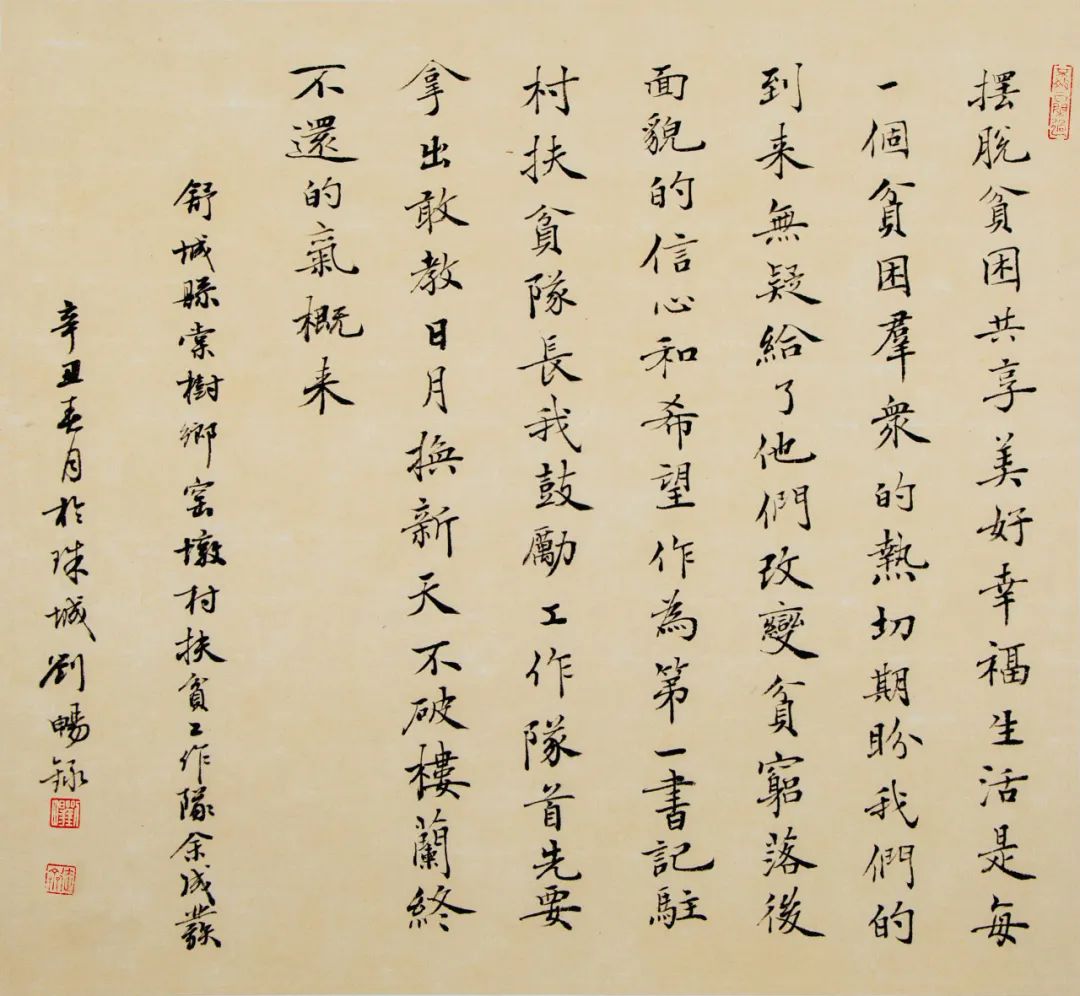 摆脫貧困共享美好幸福生活是每
一個貧困羣衆的熱切期盼我們的
到来無疑給了他們改變貧窮落後
面貌的信心和希望作為第一書記駐
村扶貧隊長我鼓勵工作隊首先要
拿出敢教日月換新天不破樓蘭終
不還的氣概来
舒城縣棠樹鄉窑墩村扶貧工作隊余成發
辛丑春月於珠城劉暢錄